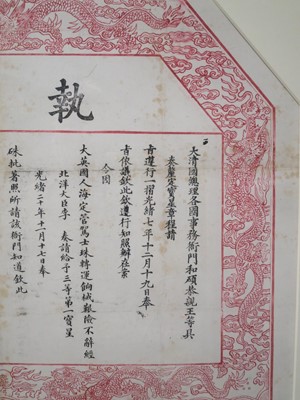 執
大清國總理各國事務衙門和碩恭親王等具
奏釐定寶星章程請
旨遵行一摺光緒七年十二月十九日奉
旨依議欽此欽遵行知照辦在案
今因
大英國人海定管駕士珠轉運餉械艱險不辭經
北洋大臣李 奏請給予三等第一寶星
光緒二十年十一月十七日奉
硃批著照所請該衙門知道欽此